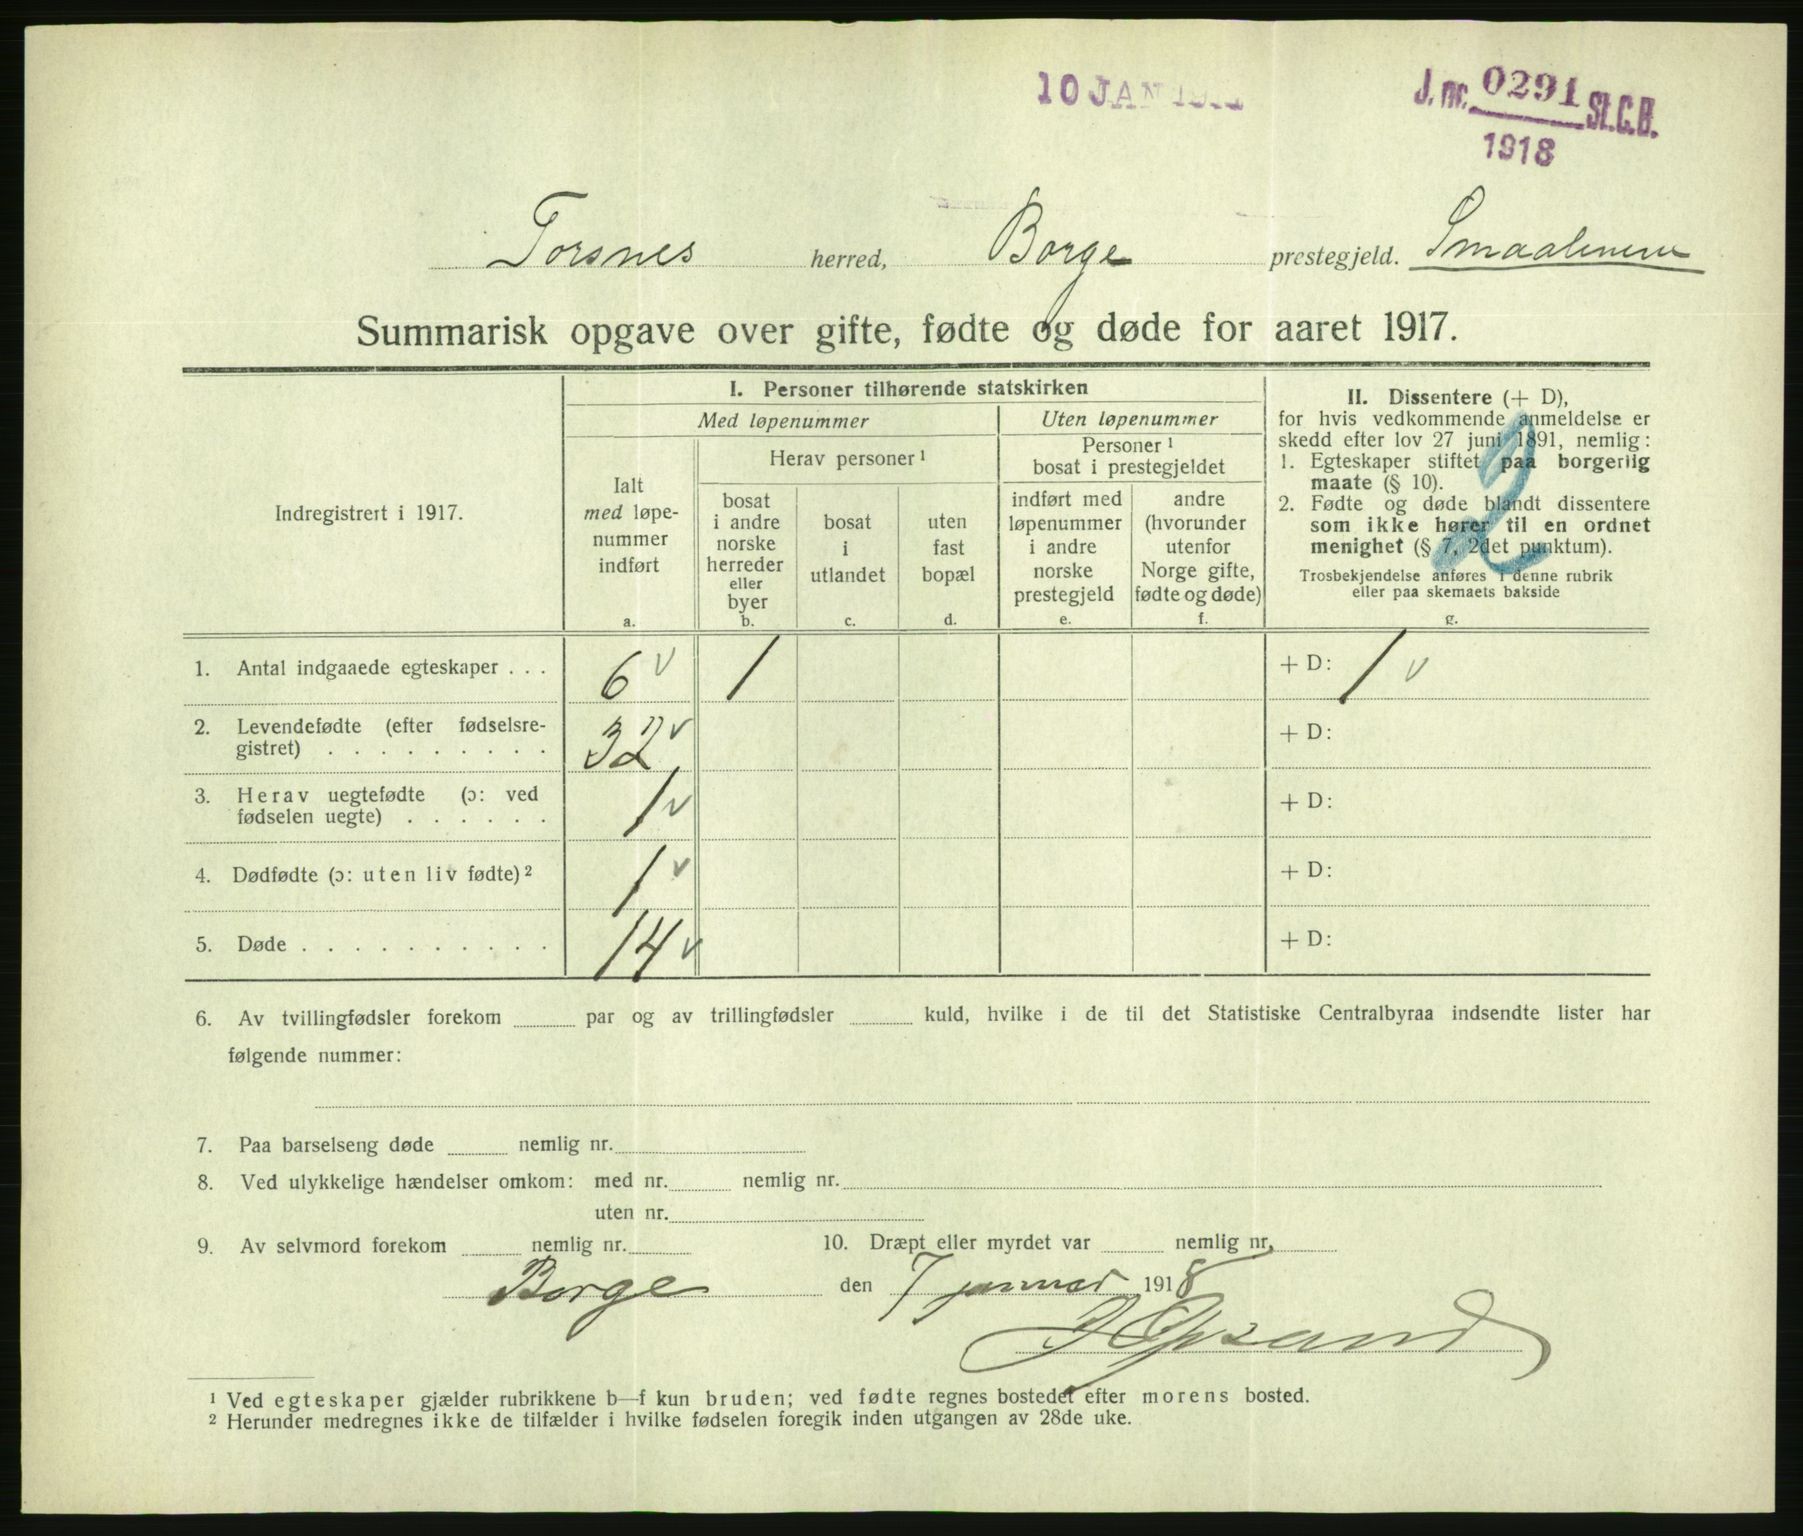 10 JAN
J. nr. 0291 St.C.B.
1918
Torsnes herred, Borge prestegjeld. Smaalenene
Summarisk opgave over gifte, fødte og døde for aaret 1917.
Indregistrert i 1917.
I. Personer tilhørende statskirken
Med løpenummer
Uten løpenummer
Ialt
med løpe-
nummer
indført
a.
Herav personer ¹
bosat
i andre
norske
herreder
eller
byer
b.
bosat
i
utlandet
c.
uten
fast
bopæl
d.
Personer ¹
bosat i prestegjeldet
indført med
løpenummer
i andre
norske
prestegjeld
e.
andre
(hvorunder
utenfor
Norge gifte,
fødte og døde)
f.
II. Dissentere (+ D),
for hvis vedkommende anmeldelse er
skedd efter lov 27 juni 1891, nemlig:
1. Egteskaper stiftet paa borgerlig
maate (§ 10).
2. Fødte og døde blandt dissentere
som ikke hører til en ordnet
menighet (§ 7, 2det punktum).
Trosbekjendelse anføres i denne rubrik
eller paa skemaets bakside
g.
2
1. Antal indgaaede egteskaper . . . 6 v 1 + D: 1 v
2. Levendefødte (efter fødselsre-
gistret) . . . . . . . . . 32 v + D:
3. Herav uegtefødte (ɔ: ved
fødselen uegte) . . . . . . 1 v + D:
4. Dødfødte (ɔ: uten liv fødte) ² 1 v + D:
5. Døde . . . . . . . . . . 14 v + D:
6. Av tvillingfødsler forekom par og av trillingfødsler kuld, hvilke i de til det Statistiske Centralbyraa indsendte lister har
følgende nummer:
7. Paa barselseng døde nemlig nr.
8. Ved ulykkelige hændelser omkom: med nr. nemlig nr.
uten nr.
9. Av selvmord forekom nemlig nr. 10. Dræpt eller myrdet var nemlig nr.
Borge den 7 januar 1918
J Opsand
¹ Ved egteskaper gjælder rubrikkene b—f kun bruden; ved fødte regnes bostedet efter morens bosted.
² Herunder medregnes ikke de tilfælder i hvilke fødselen foregik inden utgangen av 28de uke.